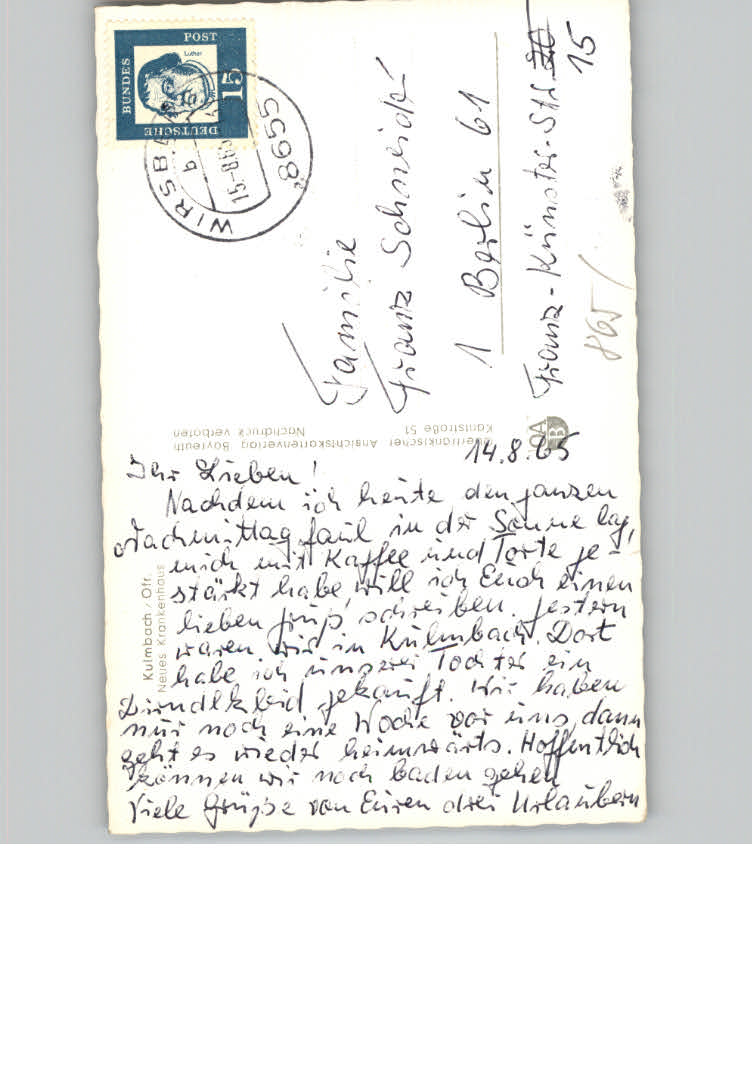 DEUTSCHE
BUNDES
POST
Luther
15
WIRSB
b
15.-8.65
8655
Familie
Franz Schneider
1 Berlin 61
Franz-Künstler-Str.
15
865/
Oberfränkischer Ansichtskartenverlag Bayreuth
Kantstraße 51 Nachdruck verboten
Kulmbach / Ofr.
Neues Krankenhaus
14.8.65
Ihr Lieben!
Nachdem ich heute den ganzen
Nachmittag faul in der Sonne lag,
mich mit Kaffee und Torte ge-
stärkt habe, will ich Euch einen
lieben Gruß schreiben. Gestern
waren wir in Kulmbach. Dort
habe ich unserer Tochter ein
Dirndlkleid gekauft. Wir haben
nur noch eine Woche vor uns, dann
geht es wieder heimwärts. Hoffentlich
können wir noch baden gehen
Viele Grüße von Euren drei Urlaubern